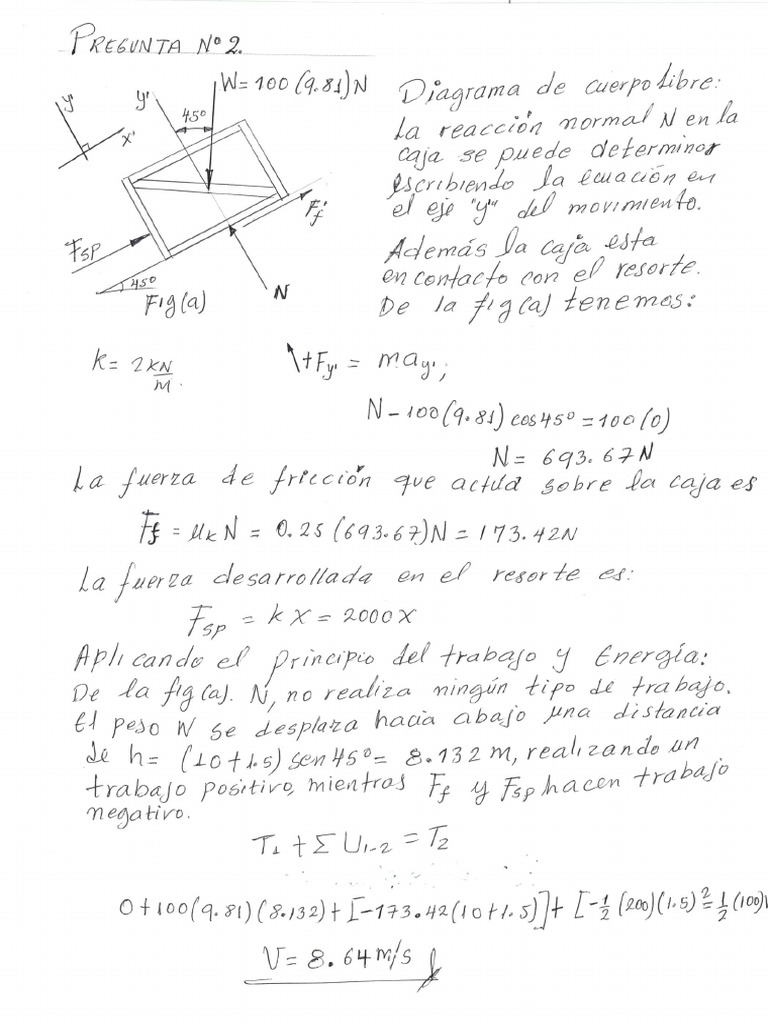 PREGUNTA Nº 2.
W= 100 (9.81) N
y'
45º
y'
x'
Ff'
FSP
45º
Fig(a)
N
Diagrama de cuerpo libre:
La reacción normal N en la
caja se puede determinar
escribiendo la ecuación en
el eje "y" del movimiento.
Además la caja esta
en contacto con el resorte.
De la fig(a) tenemos:
k = 2 kN/m.
+Fy' = may';
N - 100 (9.81) cos45º = 100 (0)
N = 693.67 N
La fuerza de fricción que actúa sobre la caja es
Ff = μkN = 0.25 (693.67)N = 173.42N
La fuerza desarrollada en el resorte es:
Fsp = k x = 2000x
Aplicando el principio del trabajo y Energía:
De la fig(a). N, no realiza ningún tipo de trabajo.
El peso W se desplaza hacia abajo una distancia
de h= (10+1.5) sen 45º = 8.132 m, realizando un
trabajo positivo, mientras Ff y Fsp hacen trabajo
negativo.
T1 + Σ U1-2 = T2
0+100(9.81)(8.132)+[-173.42(10+1.5)]+ [-1/2 (200)(1.5)² = 1/2 (100)V
V= 8.64 m/s